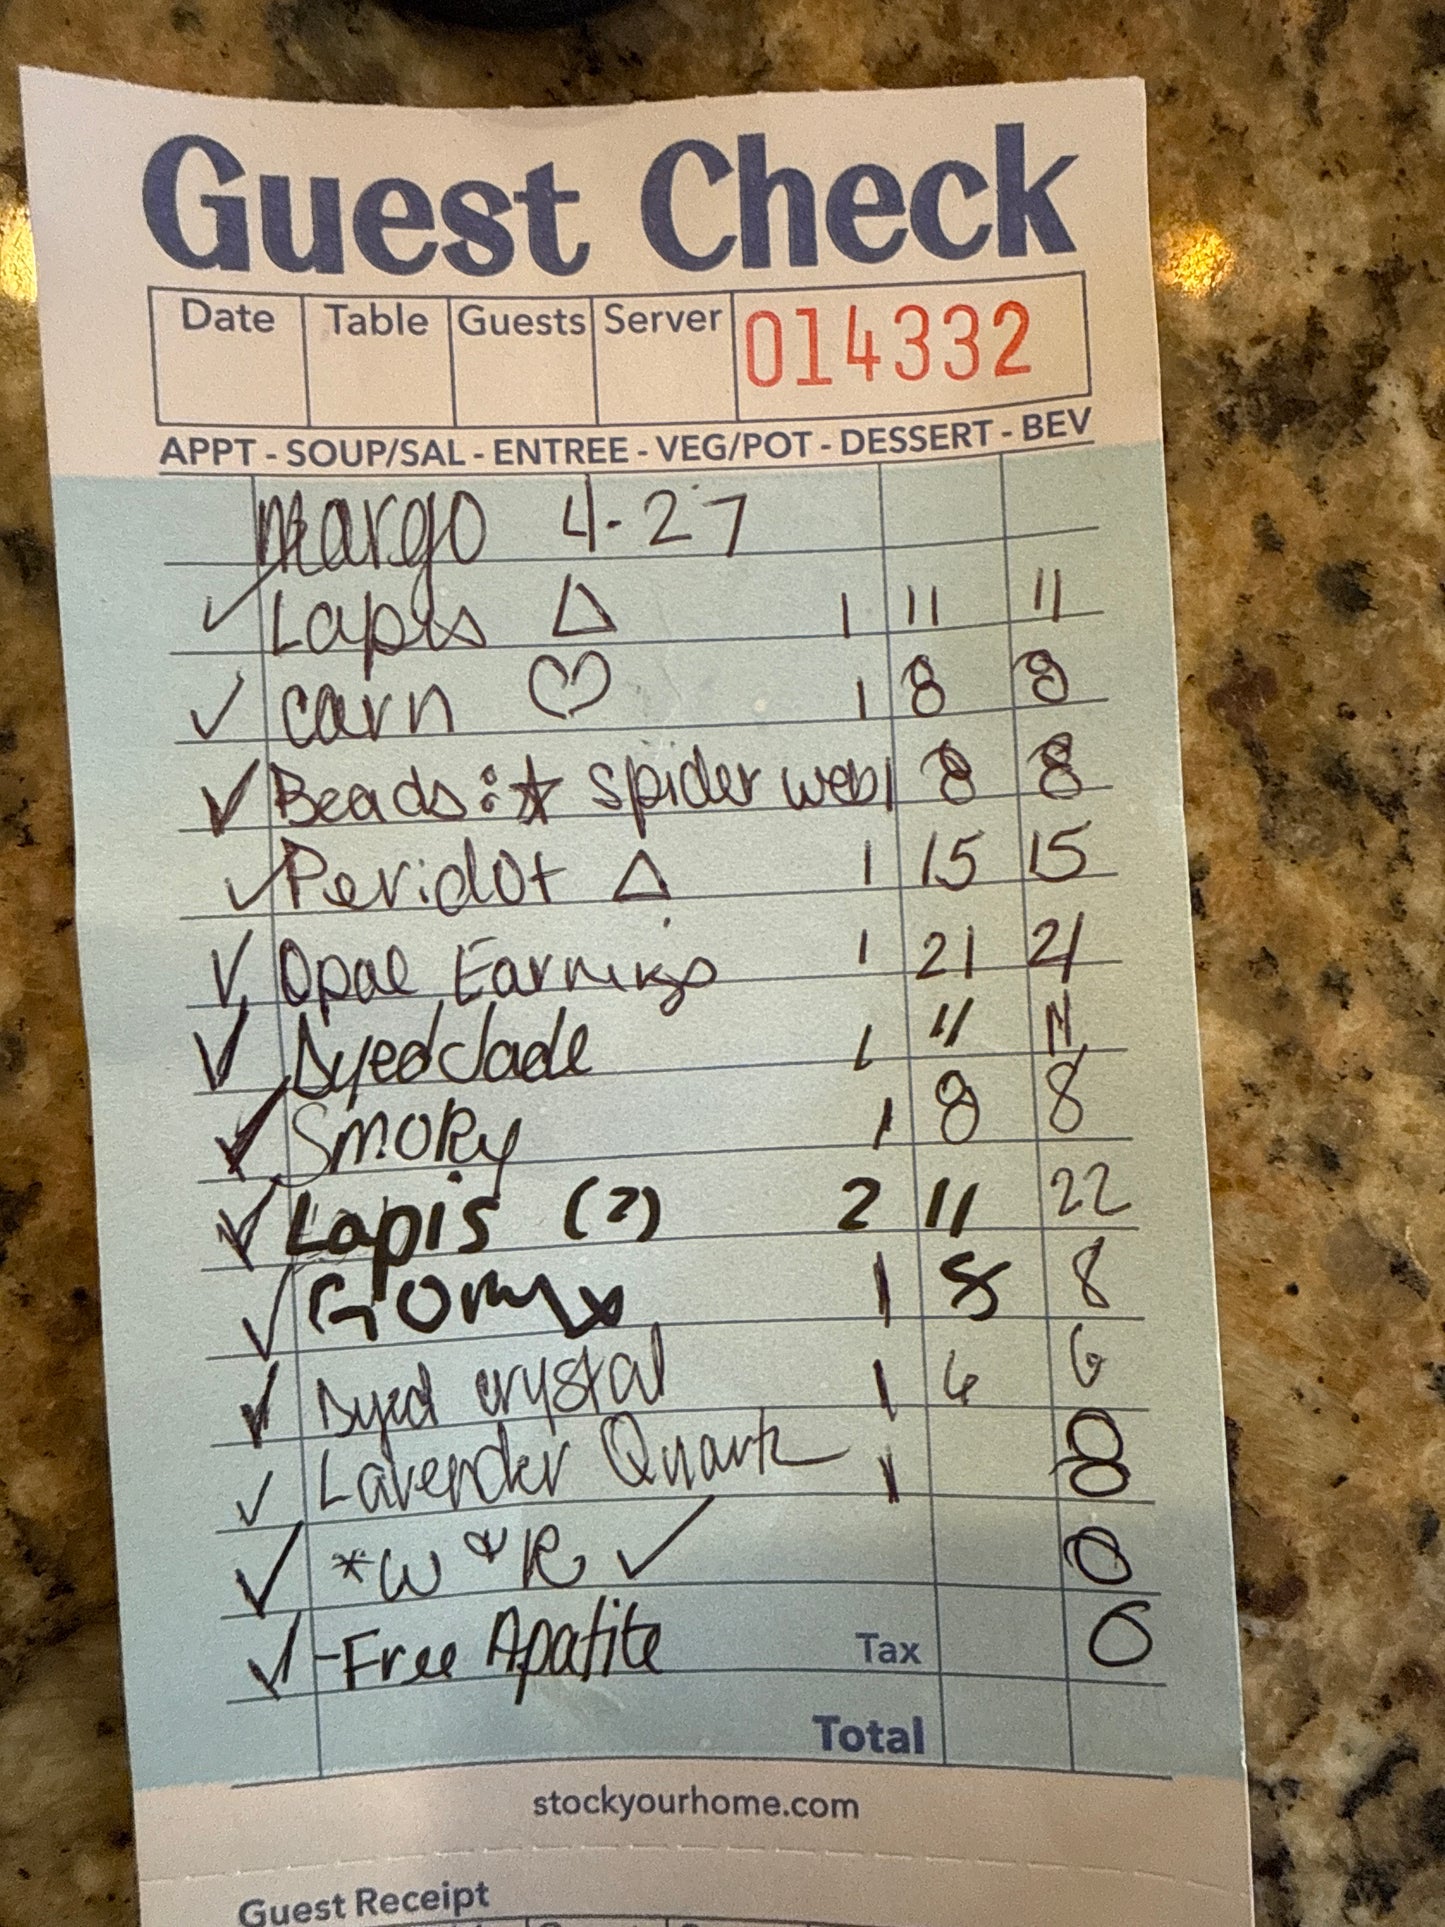 Guest Check
Date Table Guests Server 014332
APPT - SOUP/SAL - ENTREE - VEG/POT - DESSERT - BEV
margo 4-27
✓ Lapis △ 1 11 11
✓ carn ♡ 1 8 8
✓ Beads: ☆ spider web 1 8 8
✓ Peridot △ 1 15 15
✓ Opal Earrings 1 21 21
✓ Dyed Jade 1 11 11
✓ Smoky 1 8 8
✓ Lapis (2) 2 11 22
✓ 1 8 8
✓ Dyed crystal 1 6 6
✓ Lavender Quartz 1 8
✓ *W & R ✓ 0
✓ -Free Apatite Tax 0
Total
stockyourhome.com
Guest Receipt